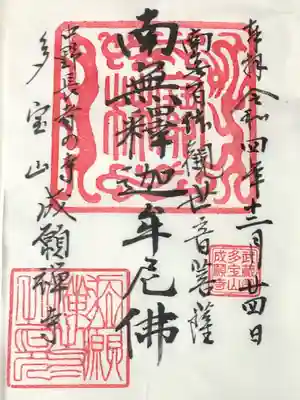 奉拝 令和四年十二月廿四日
南無百体觀世音菩薩
南無釋迦牟尼佛
中野長者の寺
多宝山成願禅寺
武蔵
多宝山
成願寺